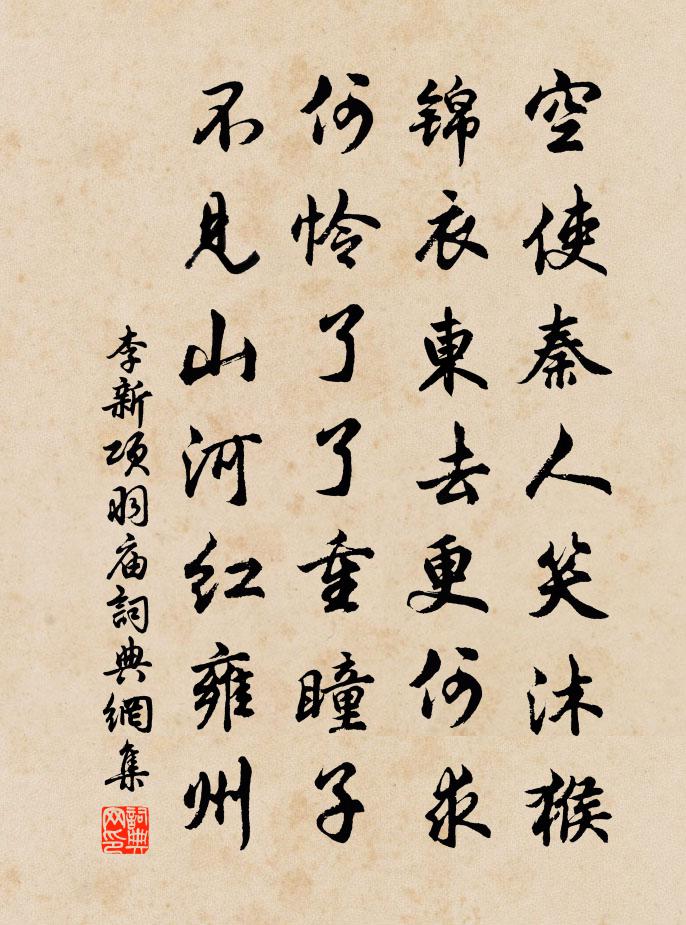 空使秦人笑沐猴
锦衣東去更何求
何怜了了重瞳子
不見山河红雍州
李新項羽庙詞典網集
詞典網印